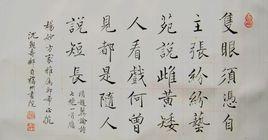 隻眼須憑自
主張紛紛藝
苑說雌黃矮
人看戲何曾
見都是隨人
說短長
清趙翼論詩